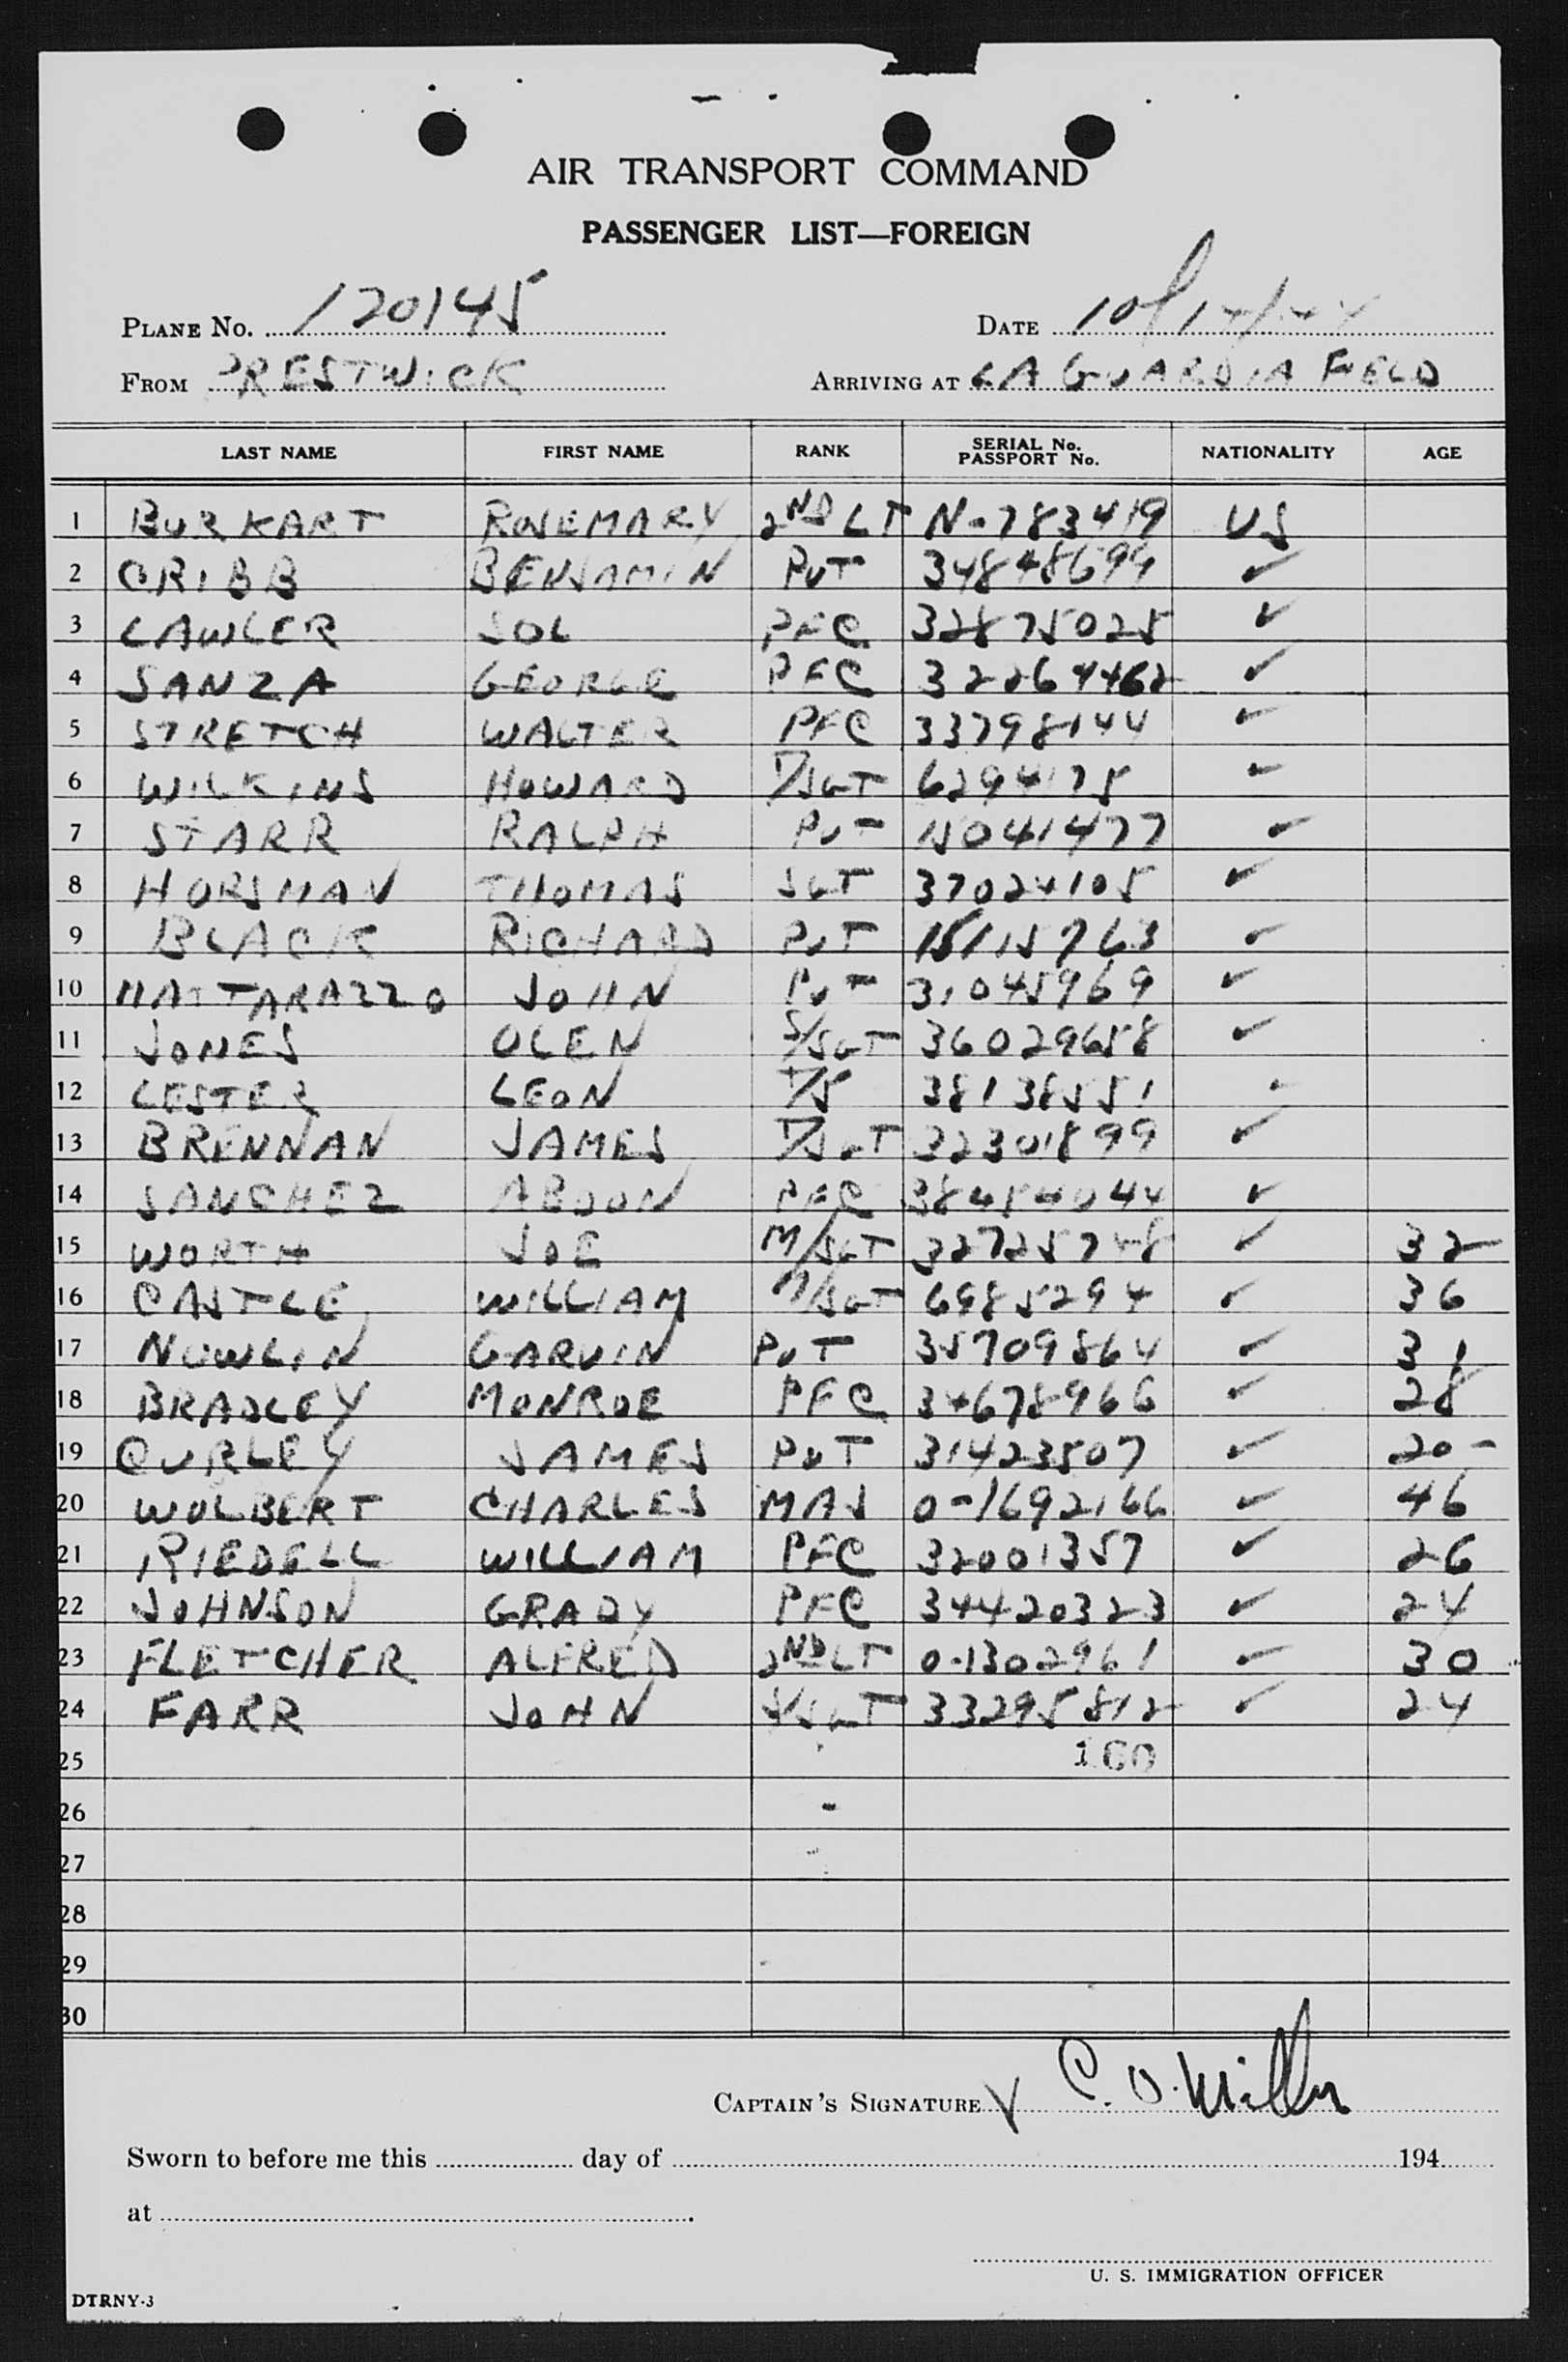 AIR TRANSPORT COMMAND
PASSENGER LIST—FOREIGN
PLANE No. 120145 DATE 10/14/44
FROM PRESTWICK ARRIVING AT LA GUARDIA FIELD
LAST NAME FIRST NAME RANK SERIAL No. PASSPORT No. NATIONALITY AGE
1 BURKART ROSEMARY 2ND LT N-783419 US
2 CRIBB BENJAMIN PVT 34848699 ✓
3 LAWLER SOL PFC 32875025 ✓
4 SANZA GEORGE PFC 32264462 ✓
5 STRETCH WALTER PFC 33798144 ✓
6 WILKINS HOWARD T/SGT 6294175 ✓
7 STARR RALPH PVT 15041477 ✓
8 HORSMAN THOMAS SGT 37024105 ✓
9 BLACK RICHARD PVT 15115763 ✓
10 MATTARAZZO JOHN PVT 31045969 ✓
11 JONES OLEN S/SGT 36029658 ✓
12 LESTER LEON T/5 38138551 ✓
13 BRENNAN JAMES T/SGT 32301899 ✓
14 SANCHEZ ABDON PFC 38484044 ✓
15 WORTH JOE M/SGT 32725748 ✓ 32
16 CASTLE WILLIAM M/SGT 6985294 ✓ 36
17 NOWLIN GARVIN PVT 35709864 ✓ 31
18 BRADLEY MONROE PFC 34678966 ✓ 28
19 CURLEY JAMES PVT 31423507 ✓ 20
20 WOLBERT CHARLES MAJ 0-1692166 ✓ 46
21 RIEDELL WILLIAM PFC 32001357 ✓ 26
22 JOHNSON GRADY PFC 34420323 ✓ 24
23 FLETCHER ALFRED 2ND LT 0-1302961 ✓ 30
24 FARR JOHN S/SGT 33295812 ✓ 24
25 160
26
27
28
29
30
CAPTAIN'S SIGNATURE C. O. Miller
Sworn to before me this day of 194
at
U. S. IMMIGRATION OFFICER
DTRNY-3